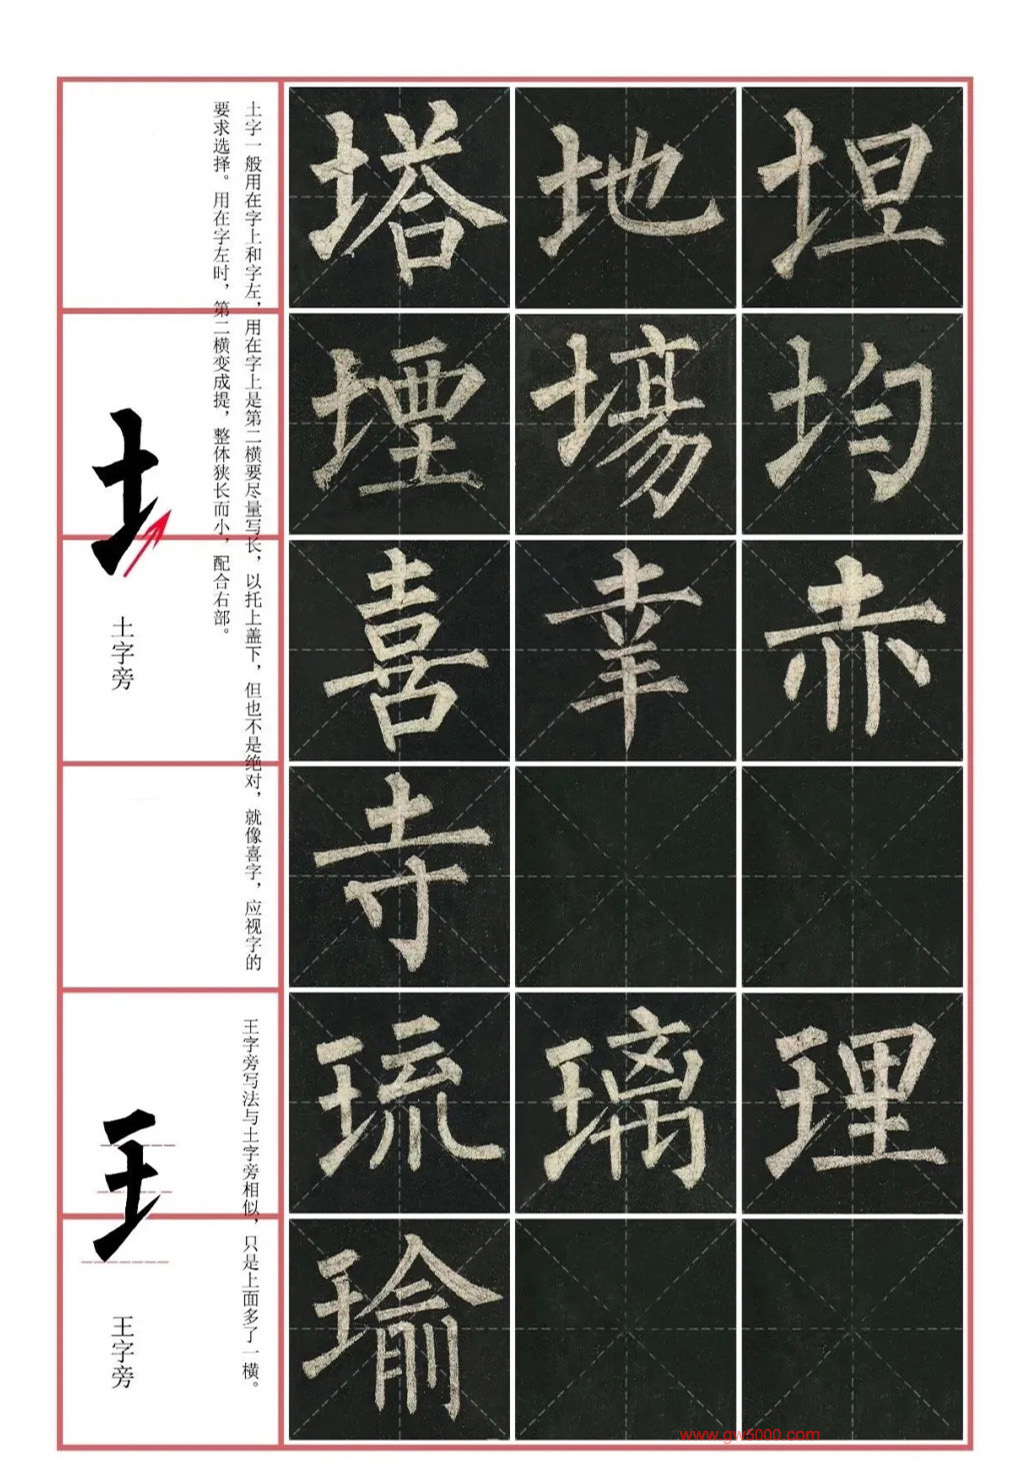 土字一般用在字上和字左，用在字上是第二横要尽量写长，以托上盖下，但也不是绝对，就像喜字，应视字的
要求选择。用在字左时，第二横变成提，整体狭长而小，配合右部。
土
土字旁
塔 地 坦
堙 場 均
喜 幸 赤
寺
王字旁写法与土字旁相似，只是上面多了一横。
王
王字旁
琉 璃 理
瑜
www.gw5000.com